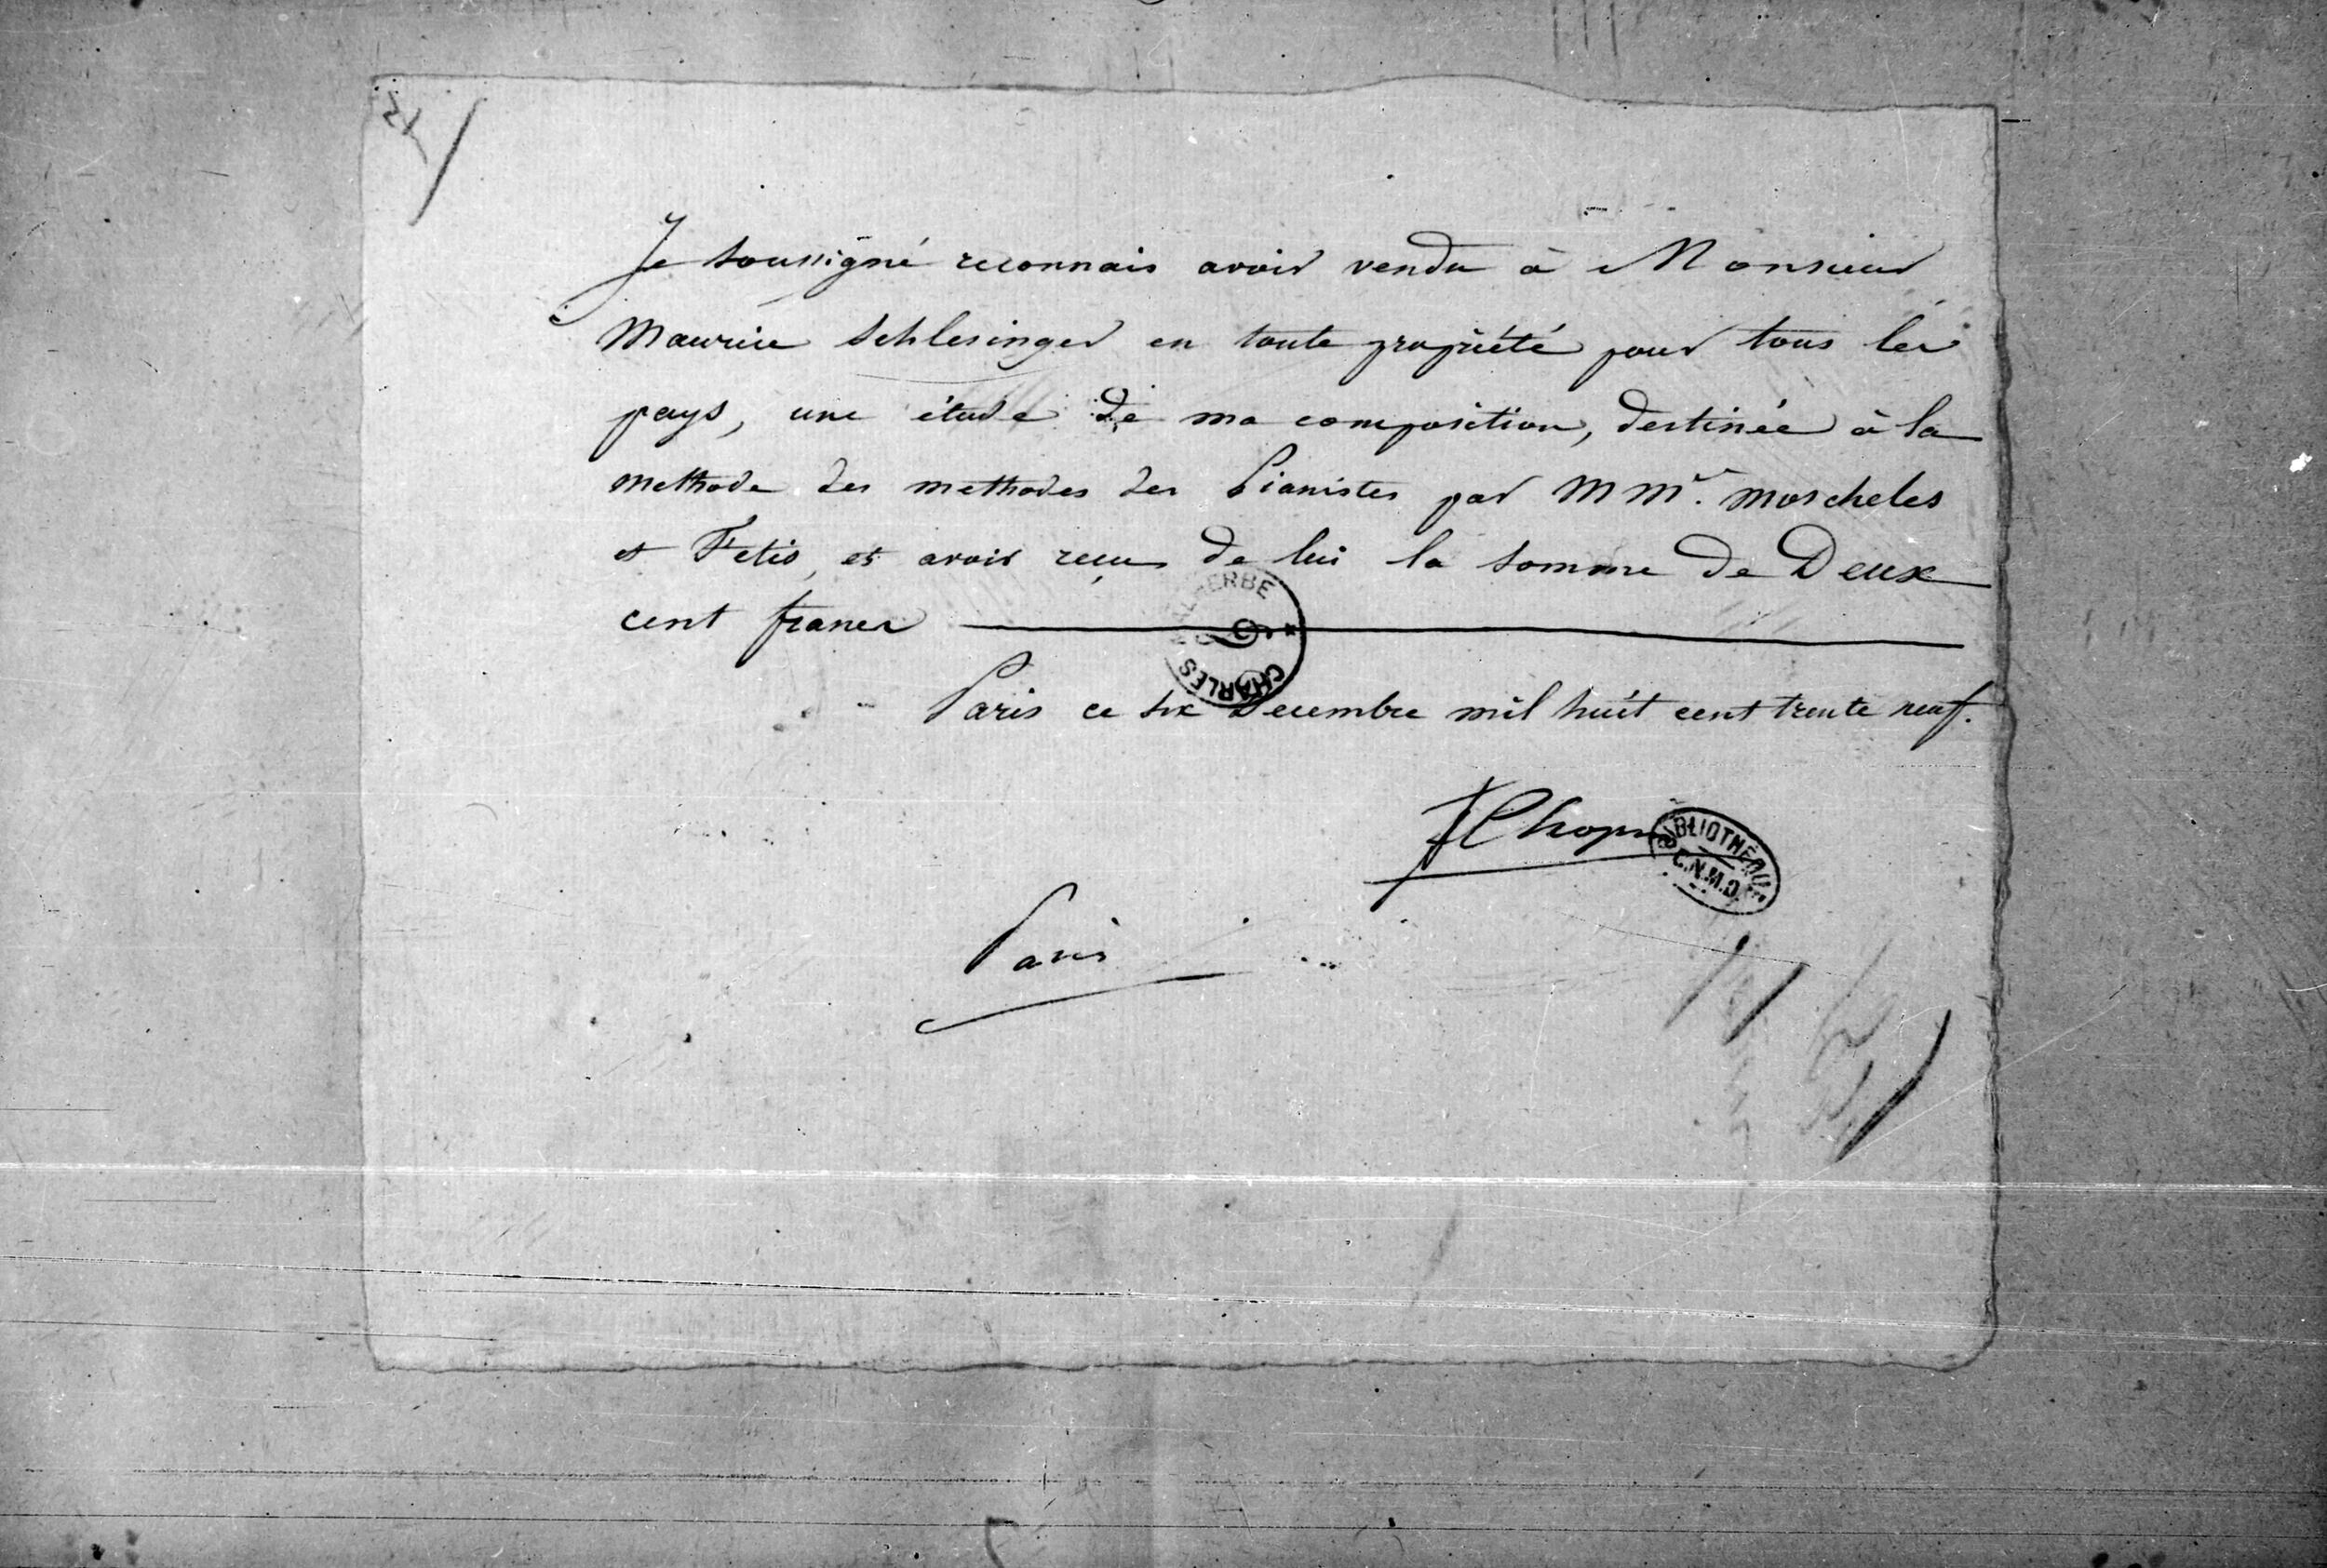 Je soussigné reconnais avoir vendu à Monsieur
Maurice Schlesinger en toute propriété pour tous les
pays, une étude de ma composition, destinée à la
methode des methodes des Pianistes par MMr. Moscheles
et Fetis, et avoir reçu de lui la somme de Deux
cent francs
CHARLES MALHERBE
Paris ce six Decembre mil huit cent trente neuf.
FChopin
BIBLIOTHÈQUE
C.N.M.D.
Paris